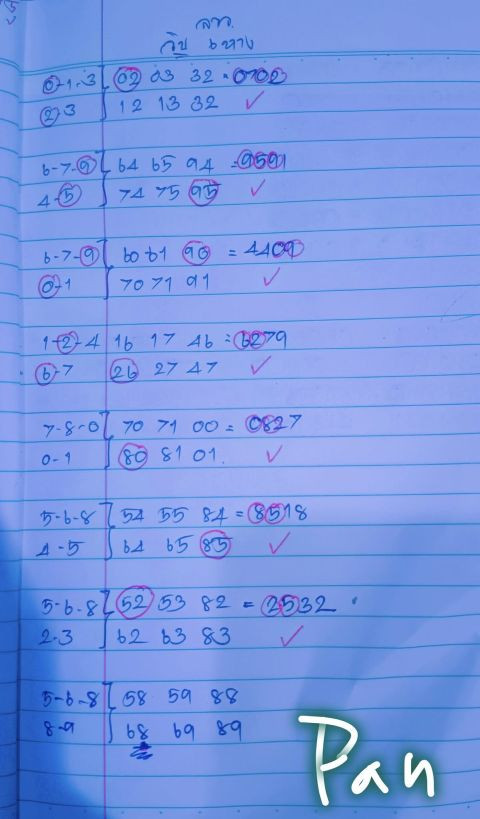 ลาว
วิ่ง 6 หาง
0-1-3 [ 02 03 32 = 0702
2-3 12 13 32 ✓
6-7-9 [ 64 65 94 = 9591
4-5 74 75 95 ✓
6-7-9 [ 60 61 90 = 4409
0-1 70 71 91 ✓
1-2-4 16 17 46 = 6279
6-7 26 27 47 ✓
7-8-0 [ 70 71 00 = 0827
0-1 80 81 01. ✓
5-6-8 [ 54 55 84 = 8518
4-5 64 65 85 ✓
5-6-8 [ 52 53 82 = 2532
2-3 62 63 83 ✓
5-6-8 [ 58 59 88
8-9 68 69 89
Pan